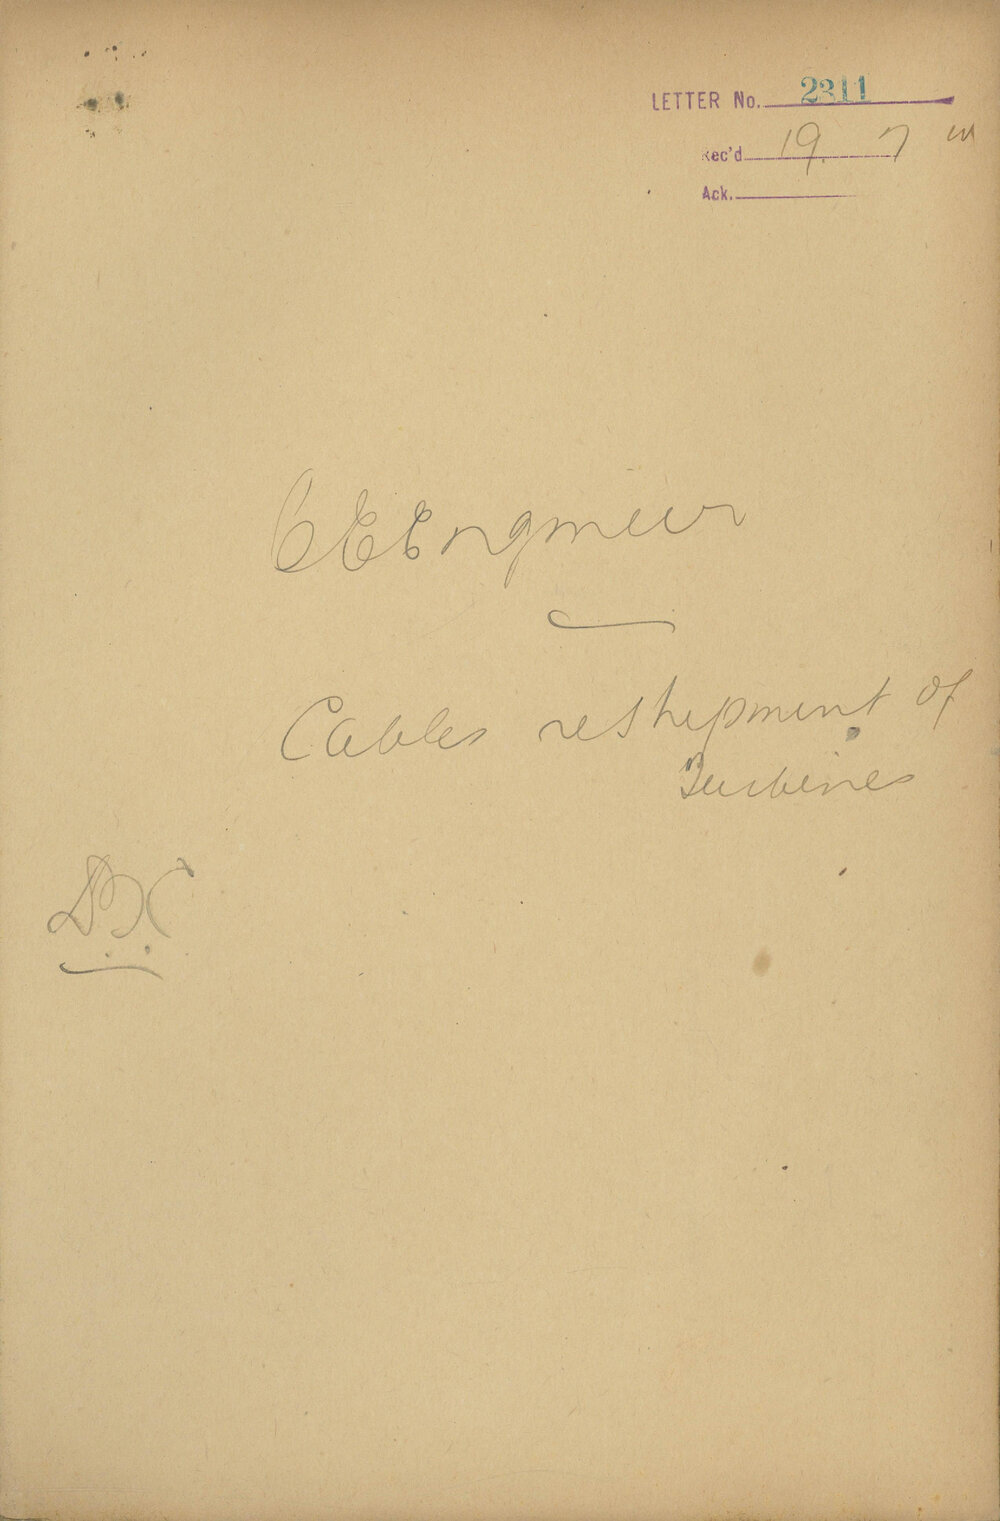 LETTER No. 2311
Rec'd 19. 7
Ack.
C E Engineer
Cables reshipment of
Turbines